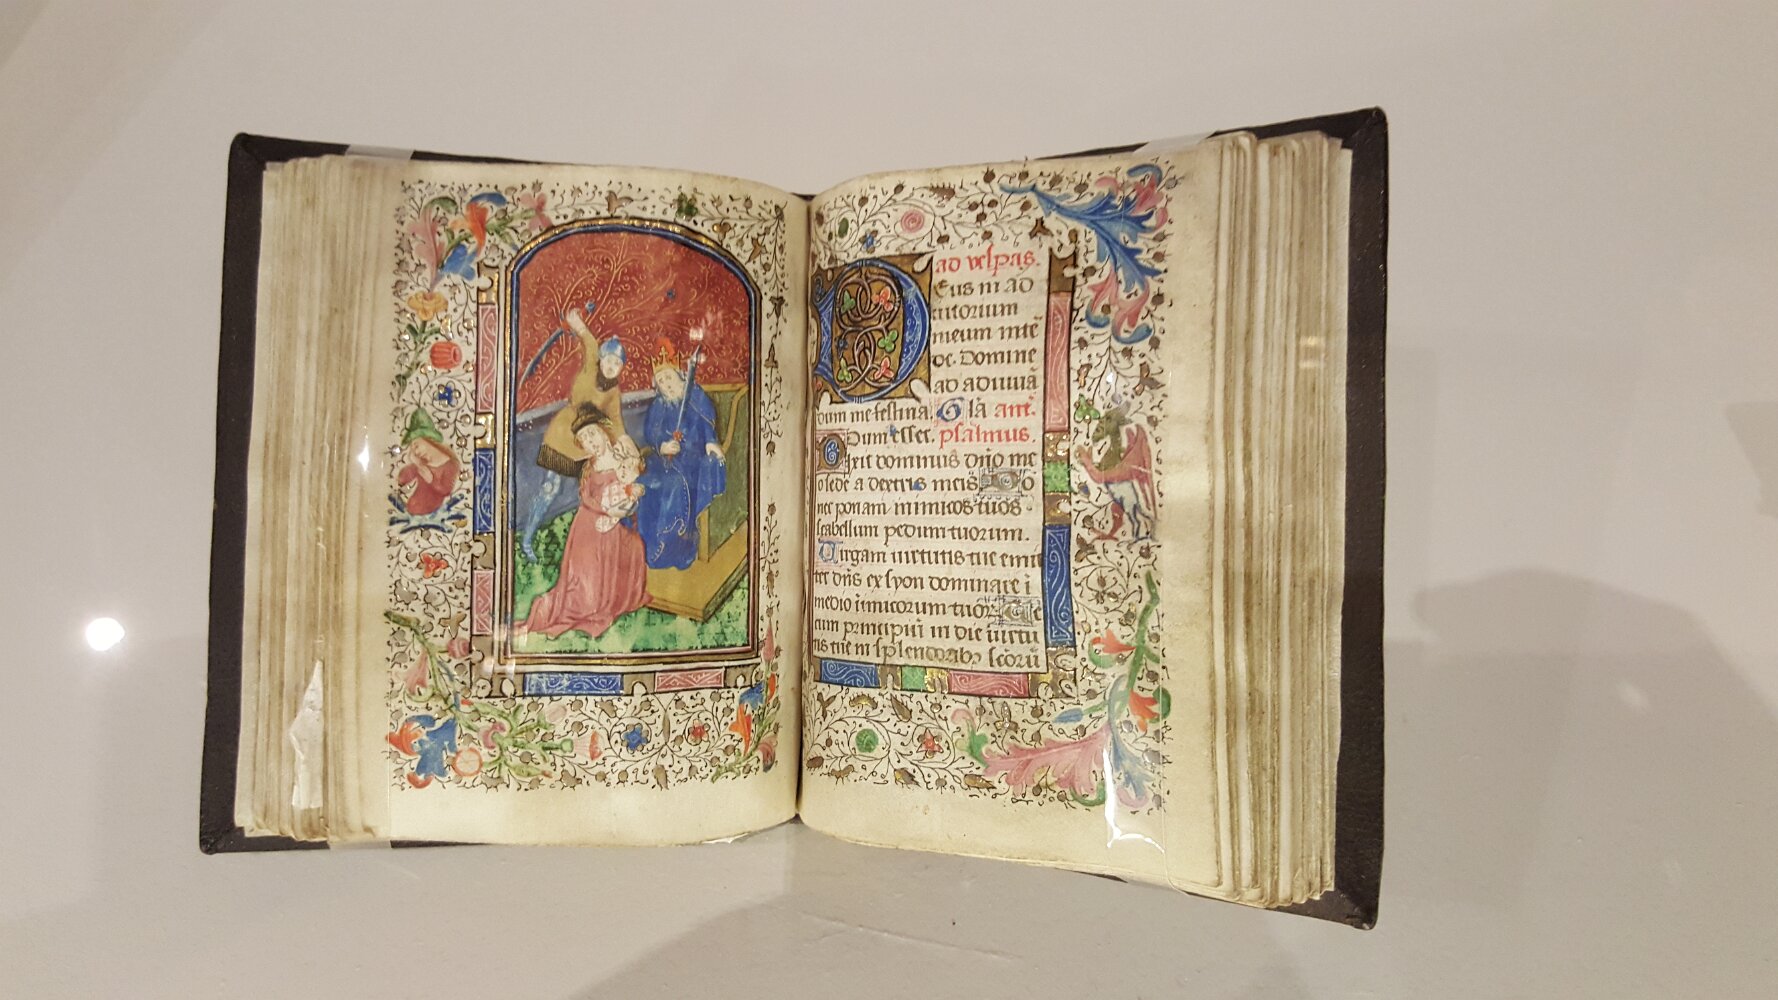 ad vespas.
Deus in ad
iutorium
meum inte
de. Domine
ad adiuuā
dum me festina. Glā ant.
Dum esset. psalmus.
Dixit dominus dn̄o me
o sede a dextris meis Do
nec ponam inimicos tuos
scabellum pedum tuorum.
Virgam uirtutis tue emit
tet dn̄s ex syon dominare ī
medio īimicorum tuoꝝ Te
cum principiū in die uirtu
tis tue in splendoribꝰ scōrū